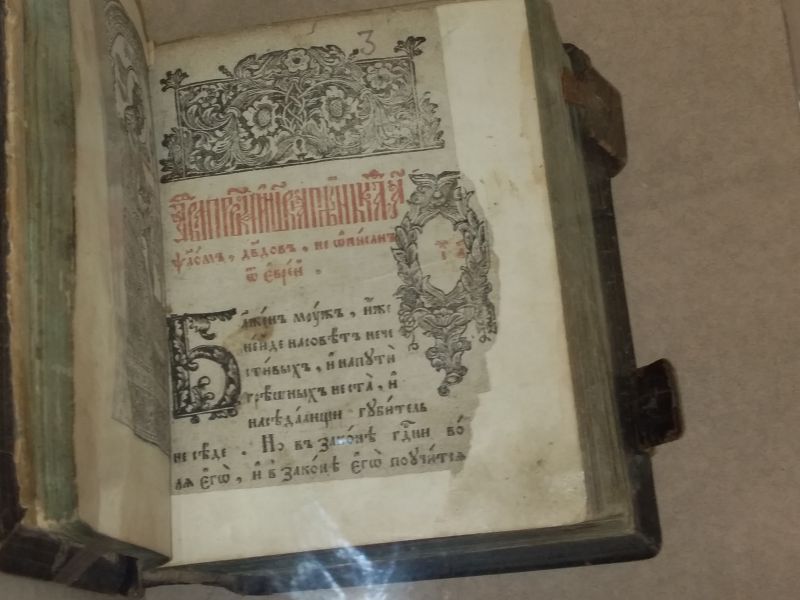 3
ѱало́мъ, дв҃довъ, не ѡ҆пи́санъ
ѿ є҆врє́й.
Бл҃же́нъ моу́жъ, и҆́же
не и҆́де на совѣ́тъ нече
сти́выхъ, и҆ на пути̑
грѣ́шныхъ не ста̀, и҆
на сѣда́лищи губи́тель
не сѣ́де. Но̀ въ зако́нѣ гдⷭ҇ни во́
лѧ є҆гѡ̀, и҆ в зако́нѣ є҆гѡ̀ поучи́тсѧ